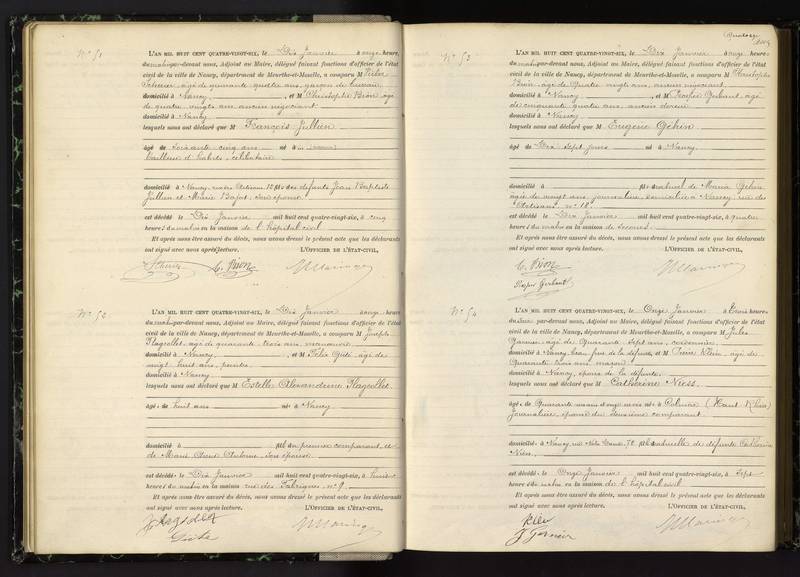 N° 51
L'AN MIL HUIT CENT QUATRE-VINGT-SIX, le Dix Janvier à onze heures
du matin par-devant nous, Adjoint au Maire, délégué faisant fonctions d'officier de l'état
civil de la ville de Nancy, département de Meurthe-et-Moselle, a comparu M
âgé de quarante quatre ans, garçon de bureau
domicilié à Nancy, et M Christophe Biron âgé
de quatre vingts ans ancien négociant
domicilié à Nancy
lesquels nous ont déclaré que M François Jullien
âgé de soixante cinq ans né à
tailleur d'habits, célibataire
domicilié à Nancy, fils des défunts Jean Baptiste
Jullien et Marie Bajot, son épouse
est décédé le Dix Janvier mil huit cent quatre-vingt-six, à cinq
heures du matin en la maison de l'hôpital civil
Et après nous être assuré du décès, nous avons dressé le présent acte que les déclarants
ont signé avec nous après lecture. L'OFFICIER DE L'ÉTAT-CIVIL,
C. Biron
N° 52
L'AN MIL HUIT CENT QUATRE-VINGT-SIX, le Dix Janvier à onze heures
du matin par-devant nous, Adjoint au Maire, délégué faisant fonctions d'officier de l'état
civil de la ville de Nancy, département de Meurthe-et-Moselle, a comparu M Joseph
Flageollet, âgé de quarante trois ans, manœuvre
domicilié à Nancy, et M Félix âgé de
vingt huit ans, peintre
domicilié à Nancy
lesquels nous ont déclaré que M Estelle Alexandrine Flageollet
âgée de huit ans née à Nancy
domicilié à fille du premier comparant, et
de Marie son épouse
est décédée le Dix Janvier mil huit cent quatre-vingt-six, à
heures du matin en la maison rue des Fabriques, n° 9
Et après nous être assuré du décès, nous avons dressé le présent acte que les déclarants
ont signé avec nous après lecture. L'OFFICIER DE L'ÉTAT-CIVIL,
N° 53
L'AN MIL HUIT CENT QUATRE-VINGT-SIX, le Dix Janvier à onze heures
du matin par-devant nous, Adjoint au Maire, délégué faisant fonctions d'officier de l'état
civil de la ville de Nancy, département de Meurthe-et-Moselle, a comparu M Christophe
Biron âgé de Quatre vingts ans, ancien négociant
domicilié à Nancy, et M Prosper âgé
de cinquante quatre ans, ancien
domicilié à Nancy
lesquels nous ont déclaré que M Eugène Géhin
âgé de Dix sept jours né à Nancy
domicilié à fils naturel de Maria Géhin
âgée de vingt ans, journalière, domiciliée à Nancy, rue des
n° 18
est décédé le Dix Janvier mil huit cent quatre-vingt-six, à quatre
heures du matin en la maison de secours
Et après nous être assuré du décès, nous avons dressé le présent acte que les déclarants
ont signé avec nous après lecture. L'OFFICIER DE L'ÉTAT-CIVIL,
C. Biron
Prosper
N° 54
L'AN MIL HUIT CENT QUATRE-VINGT-SIX, le Onze Janvier à trois heures
du soir par-devant nous, Adjoint au Maire, délégué faisant fonctions d'officier de l'état
civil de la ville de Nancy, département de Meurthe-et-Moselle, a comparu M Jules
Garnier âgé de Quarante sept ans, cordonnier
domicilié à Nancy, beau frère de la défunte, et M Pierre Klein, âgé de
Quarante trois ans, maçon
domicilié à Nancy, époux de la défunte
lesquels nous ont déclaré que M Catherine Niess
âgée de Quarante née à Colmar (Haut Rhin)
Journalière, épouse du deuxième comparant
domiciliée à Nancy, fille naturelle de défunte Catherine
Niess
est décédée le Onze Janvier mil huit cent quatre-vingt-six, à sept
heures du matin en la maison de l'hôpital civil
Et après nous être assuré du décès, nous avons dressé le présent acte que les déclarants
ont signé avec nous après lecture. L'OFFICIER DE L'ÉTAT-CIVIL,
J Garnier